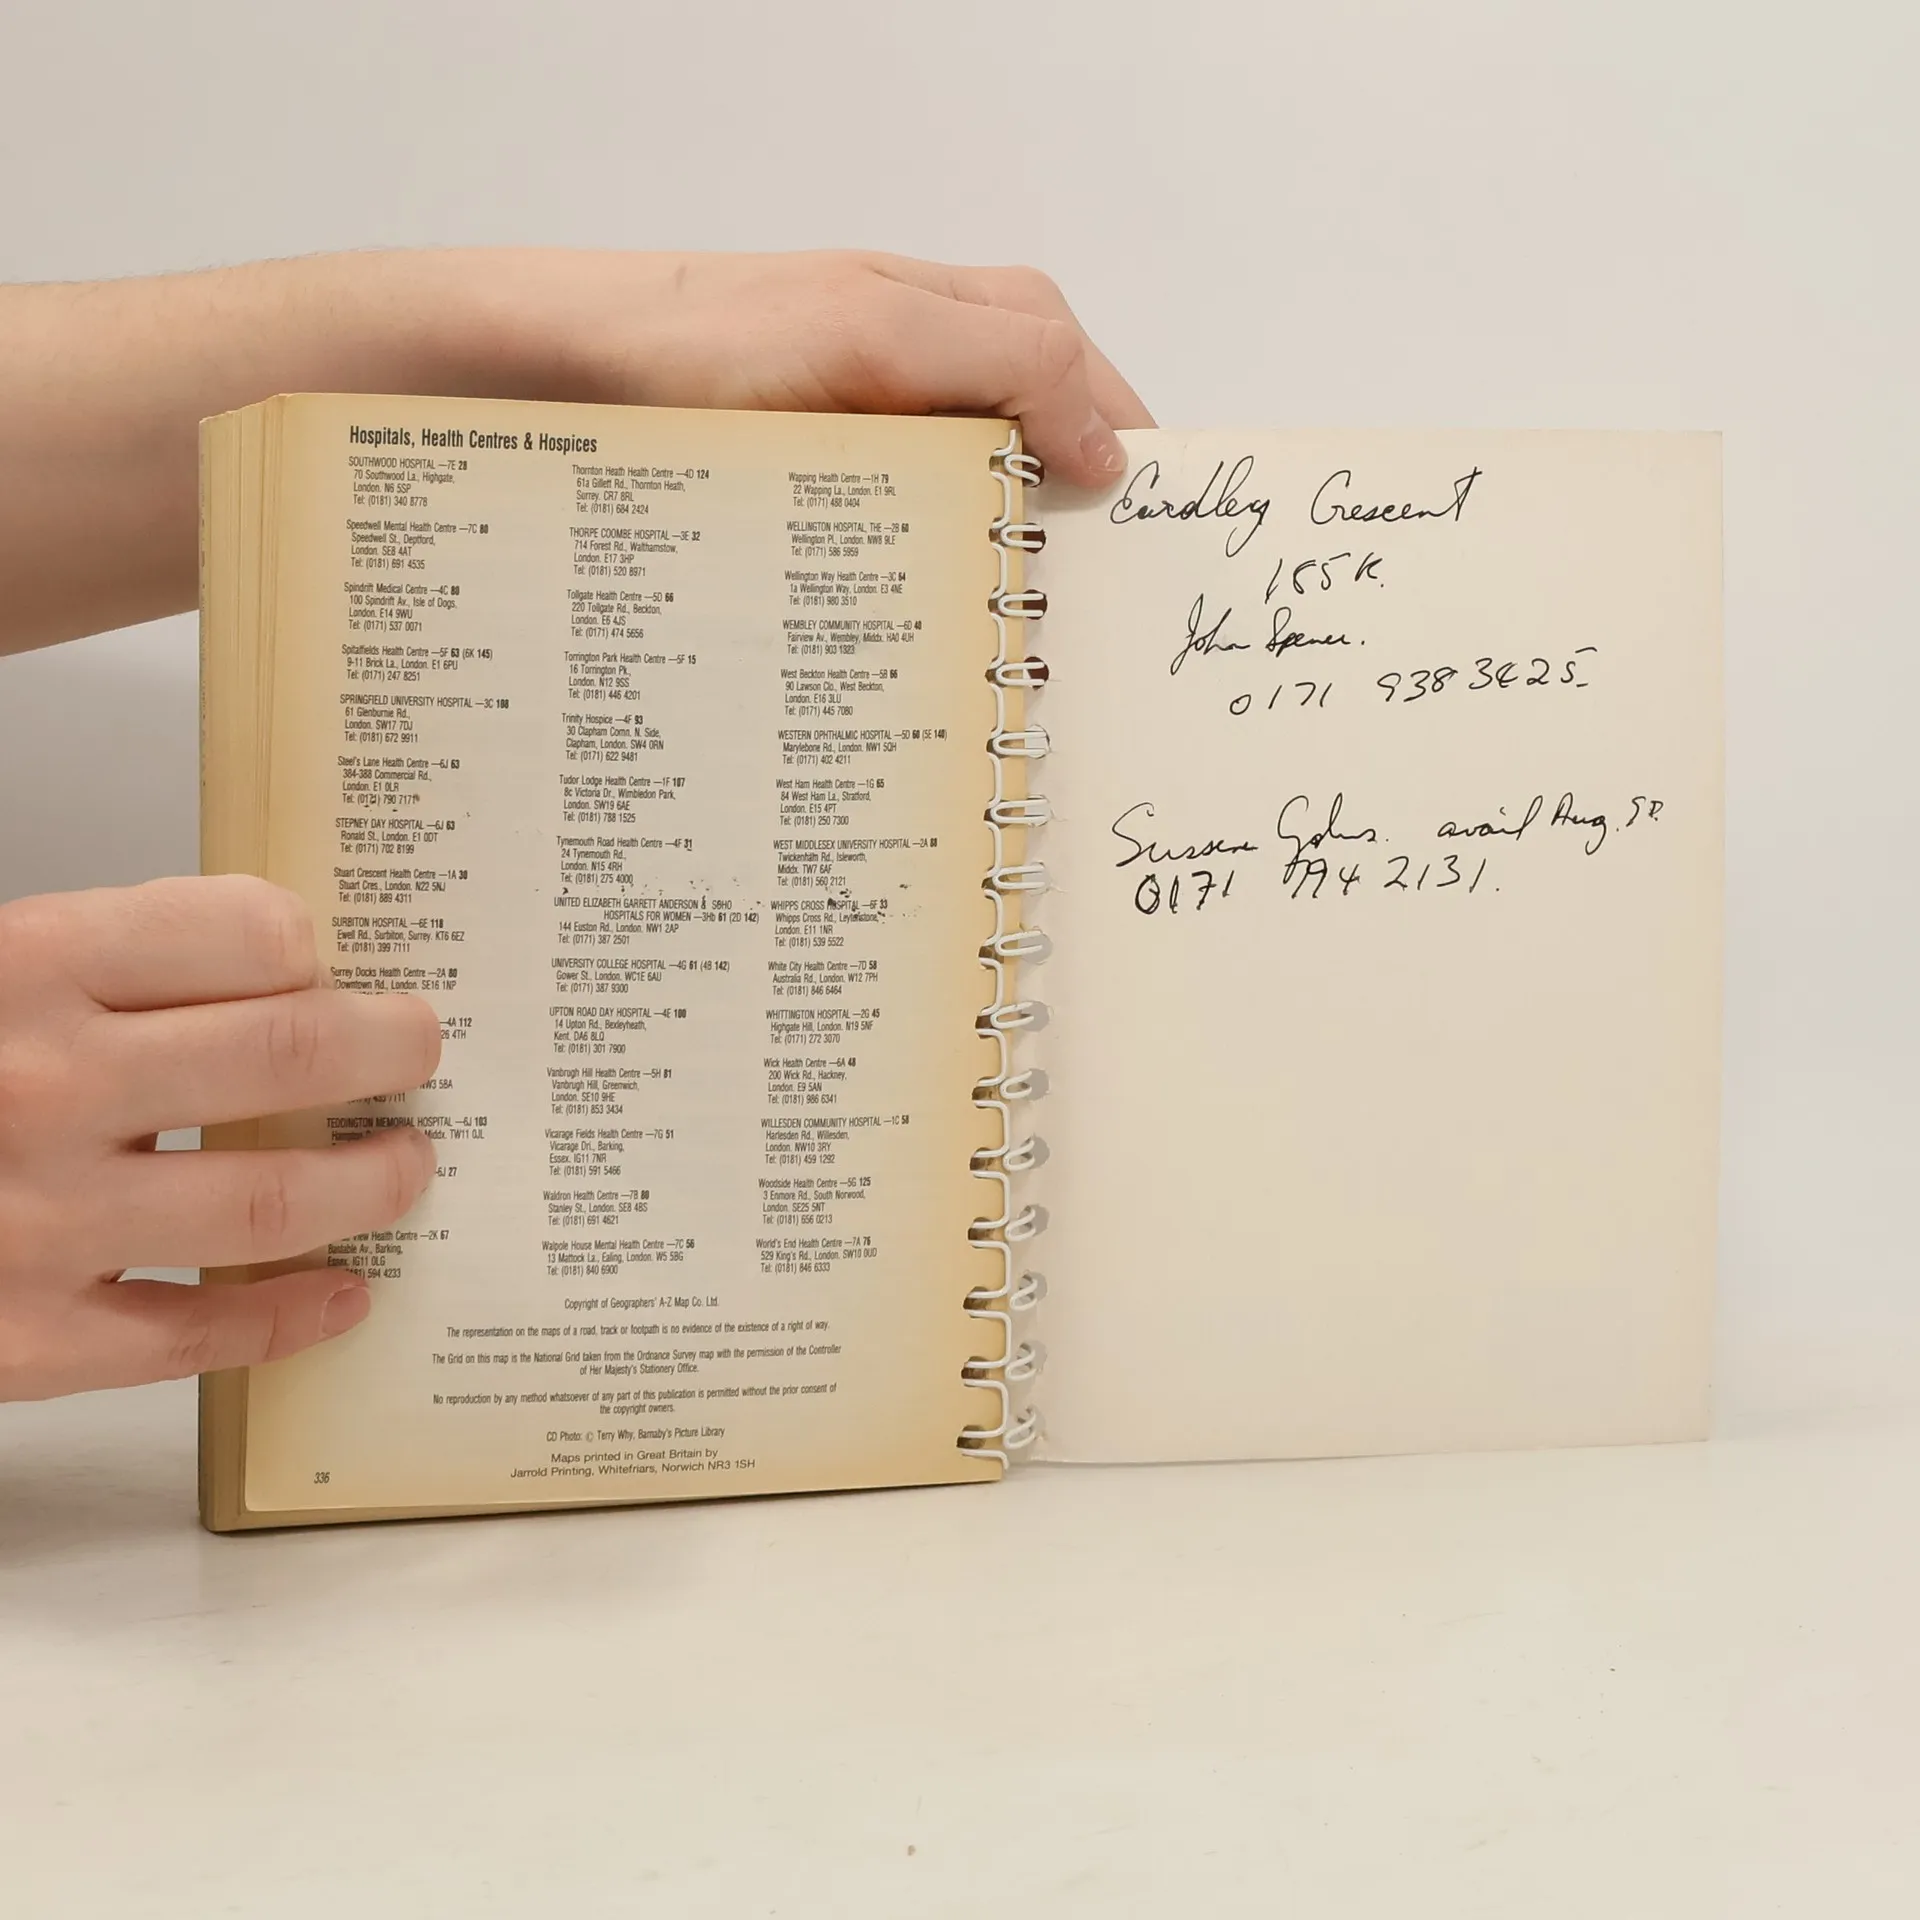 Hospitals, Health Centres & Hospices
SOUTHWOOD HOSPITAL —7E 28
70 Southwood La., Highgate,
London. N6 5SP
Tel: (0181) 340 8778
Speedwell Mental Health Centre —7C 80
Speedwell St., Deptford,
London. SE8 4AT
Tel: (0181) 691 4535
Spindrift Medical Centre —4C 80
100 Spindrift Av., Isle of Dogs,
London. E14 9WU
Tel: (0171) 537 0071
Spitalfields Health Centre —5F 63 (6K 145)
9-11 Brick La., London. E1 6PU
Tel: (0171) 247 8251
SPRINGFIELD UNIVERSITY HOSPITAL —3C 108
61 Glenburnie Rd.,
London. SW17 7DJ
Tel: (0181) 672 9911
Steel's Lane Health Centre —6J 63
384-388 Commercial Rd.,
London. E1 0LR
Tel: (0171) 790 7171
STEPNEY DAY HOSPITAL —6J 63
Ronald St., London. E1 0DT
Tel: (0171) 702 8199
Stuart Crescent Health Centre —1A 30
Stuart Cres., London. N22 5NJ
Tel: (0181) 889 4311
SURBITON HOSPITAL —6E 118
Ewell Rd., Surbiton, Surrey. KT6 6EZ
Tel: (0181) 399 7111
Surrey Docks Health Centre —2A 80
Downtown Rd., London. SE16 1NP
—4A 112
26 4TH
NW3 5BA
TEDDINGTON MEMORIAL HOSPITAL —6J 103
Middx. TW11 0JL
—6J 27
View Health Centre —2K 67
Bastable Av., Barking,
Essex. IG11 0LG
594 4233
Thornton Heath Health Centre —4D 124
61a Gillett Rd., Thornton Heath,
Surrey. CR7 8RL
Tel: (0181) 684 2424
THORPE COOMBE HOSPITAL —3E 32
714 Forest Rd., Walthamstow,
London. E17 3HP
Tel: (0181) 520 8971
Tollgate Health Centre —5D 66
220 Tollgate Rd., Beckton,
London. E6 4JS
Tel: (0171) 474 5656
Torrington Park Health Centre —5F 15
16 Torrington Pk.,
London. N12 9SS
Tel: (0181) 446 4201
Trinity Hospice —4F 93
30 Clapham Comn. N. Side,
Clapham, London. SW4 0RN
Tel: (0171) 622 9481
Tudor Lodge Health Centre —1F 107
8c Victoria Dr., Wimbledon Park,
London. SW19 6AE
Tel: (0181) 788 1525
Tynemouth Road Health Centre —4F 31
24 Tynemouth Rd.,
London. N15 4RH
Tel: (0181) 275 4000
UNITED ELIZABETH GARRETT ANDERSON & SOHO
HOSPITALS FOR WOMEN —3Hb 61 (2D 142)
144 Euston Rd., London. NW1 2AP
Tel: (0171) 387 2501
UNIVERSITY COLLEGE HOSPITAL —4G 61 (4B 142)
Gower St., London. WC1E 6AU
Tel: (0171) 387 9300
UPTON ROAD DAY HOSPITAL —4E 100
14 Upton Rd., Bexleyheath,
Kent. DA6 8LQ
Tel: (0181) 301 7900
Vanbrugh Hill Health Centre —5H 81
Vanbrugh Hill, Greenwich,
London. SE10 9HE
Tel: (0181) 853 3434
Vicarage Fields Health Centre —7G 51
Vicarage Dri., Barking,
Essex. IG11 7NR
Tel: (0181) 591 5466
Waldron Health Centre —7B 80
Stanley St., London. SE8 4BS
Tel: (0181) 691 4621
Walpole House Mental Health Centre —7C 56
13 Mattock La., Ealing, London. W5 5BG
Tel: (0181) 840 6900
Wapping Health Centre —1H 79
22 Wapping La., London. E1 9RL
Tel: (0171) 488 0404
WELLINGTON HOSPITAL, THE —2B 60
Wellington Pl., London. NW8 9LE
Tel: (0171) 586 5959
Wellington Way Health Centre —3C 64
1a Wellington Way, London. E3 4NE
Tel: (0181) 980 3510
WEMBLEY COMMUNITY HOSPITAL —6D 40
Fairview Av., Wembley, Middx. HA0 4UH
Tel: (0181) 903 1323
West Beckton Health Centre —5B 66
90 Lawson Clo., West Beckton,
London. E16 3LU
Tel: (0171) 445 7080
WESTERN OPHTHALMIC HOSPITAL —5D 60 (5E 140)
Marylebone Rd., London. NW1 5QH
Tel: (0171) 402 4211
West Ham Health Centre —1G 65
84 West Ham La., Stratford,
London. E15 4PT
Tel: (0181) 250 7300
WEST MIDDLESEX UNIVERSITY HOSPITAL —2A 88
Twickenham Rd., Isleworth,
Middx. TW7 6AF
Tel: (0181) 560 2121
WHIPPS CROSS HOSPITAL —6F 33
Whipps Cross Rd., Leytonstone,
London. E11 1NR
Tel: (0181) 539 5522
White City Health Centre —7D 58
Australia Rd., London. W12 7PH
Tel: (0181) 846 6464
WHITTINGTON HOSPITAL —2G 45
Highgate Hill, London. N19 5NF
Tel: (0171) 272 3070
Wick Health Centre —6A 48
200 Wick Rd., Hackney,
London. E9 5AN
Tel: (0181) 986 6341
WILLESDEN COMMUNITY HOSPITAL —1C 58
Harlesden Rd., Willesden,
London. NW10 3RY
Tel: (0181) 459 1292
Woodside Health Centre —5G 125
3 Enmore Rd., South Norwood,
London. SE25 5NT
Tel: (0181) 656 0213
World's End Health Centre —7A 76
529 King's Rd., London. SW10 0UD
Tel: (0181) 846 6333
Copyright of Geographers' A-Z Map Co. Ltd.
The representation on the maps of a road, track or footpath is no evidence of the existence of a right of way.
The Grid on this map is the National Grid taken from the Ordnance Survey map with the permission of the Controller
of Her Majesty's Stationery Office.
No reproduction by any method whatsoever of any part of this publication is permitted without the prior consent of
the copyright owners.
CD Photo: © Terry Why, Barnaby's Picture Library
Maps printed in Great Britain by
Jarrold Printing, Whitefriars, Norwich NR3 1SH
336
Eardley Crescent
185K.
John
0171 938 3425
avail Aug.
0171 794 2131.